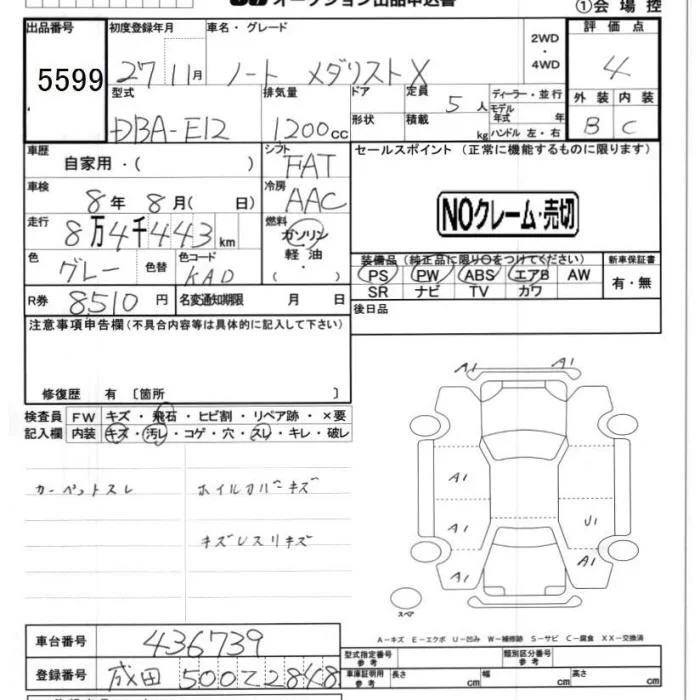 オークション出品申込書
①会場控
出品番号 初度登録年月 車名・グレード 2WD・4WD 評価点
5599 27 11月 ノート メダリストX 4
型式 排気量 ドア 定員 5人 ディーラー・並行 外装 内装
DBA-E12 1200cc 形状 積載 kg モデル年式 年 ハンドル 左・右 B C
車歴 自家用・( ) シフト FAT セールスポイント (正常に機能するものに限ります)
車検 8年 8月( 日) 冷房 AAC
NOクレーム・売切
走行 8万4千443km 燃料 ガソリン 軽油・( )
色 グレー 色替 色コード KAD
装備品 (純正品に限り○をつけてください) 新車保証書
PS PW ABS エアB AW 有・無
SR ナビ TV カワ
R券 8510円 名変通知期限 月 日 後日品
注意事項申告欄(不具合内容等は具体的に記入して下さい)
修復歴 有 〔箇所 〕
検査員 FW キズ・飛石・ヒビ割・リペア跡・×要
記入欄 内装 キズ・汚レ・コゲ・穴・スレ・キレ・破レ
カーペットスレ ホイルカバーキズ
キズレスリキズ
A1 A1
A1
A1 U1
A1 A1
スペア
A-キズ E-エクボ U-凹み W-補修跡 S-サビ C-腐食 XX-交換済
車台番号 436739
型式指定番号 参考 類別区分番号 参考
登録番号 成田 500 て 2848
車庫証明用 参考 長さ cm 幅 cm 高さ cm